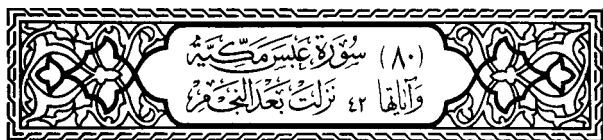 (٨٠) سُورَةُ عَبَسَ مَكِّيَّة
وَآيَاتُهَا ٤٢ نَزَلَتْ بَعْدَ النَّجْمِ